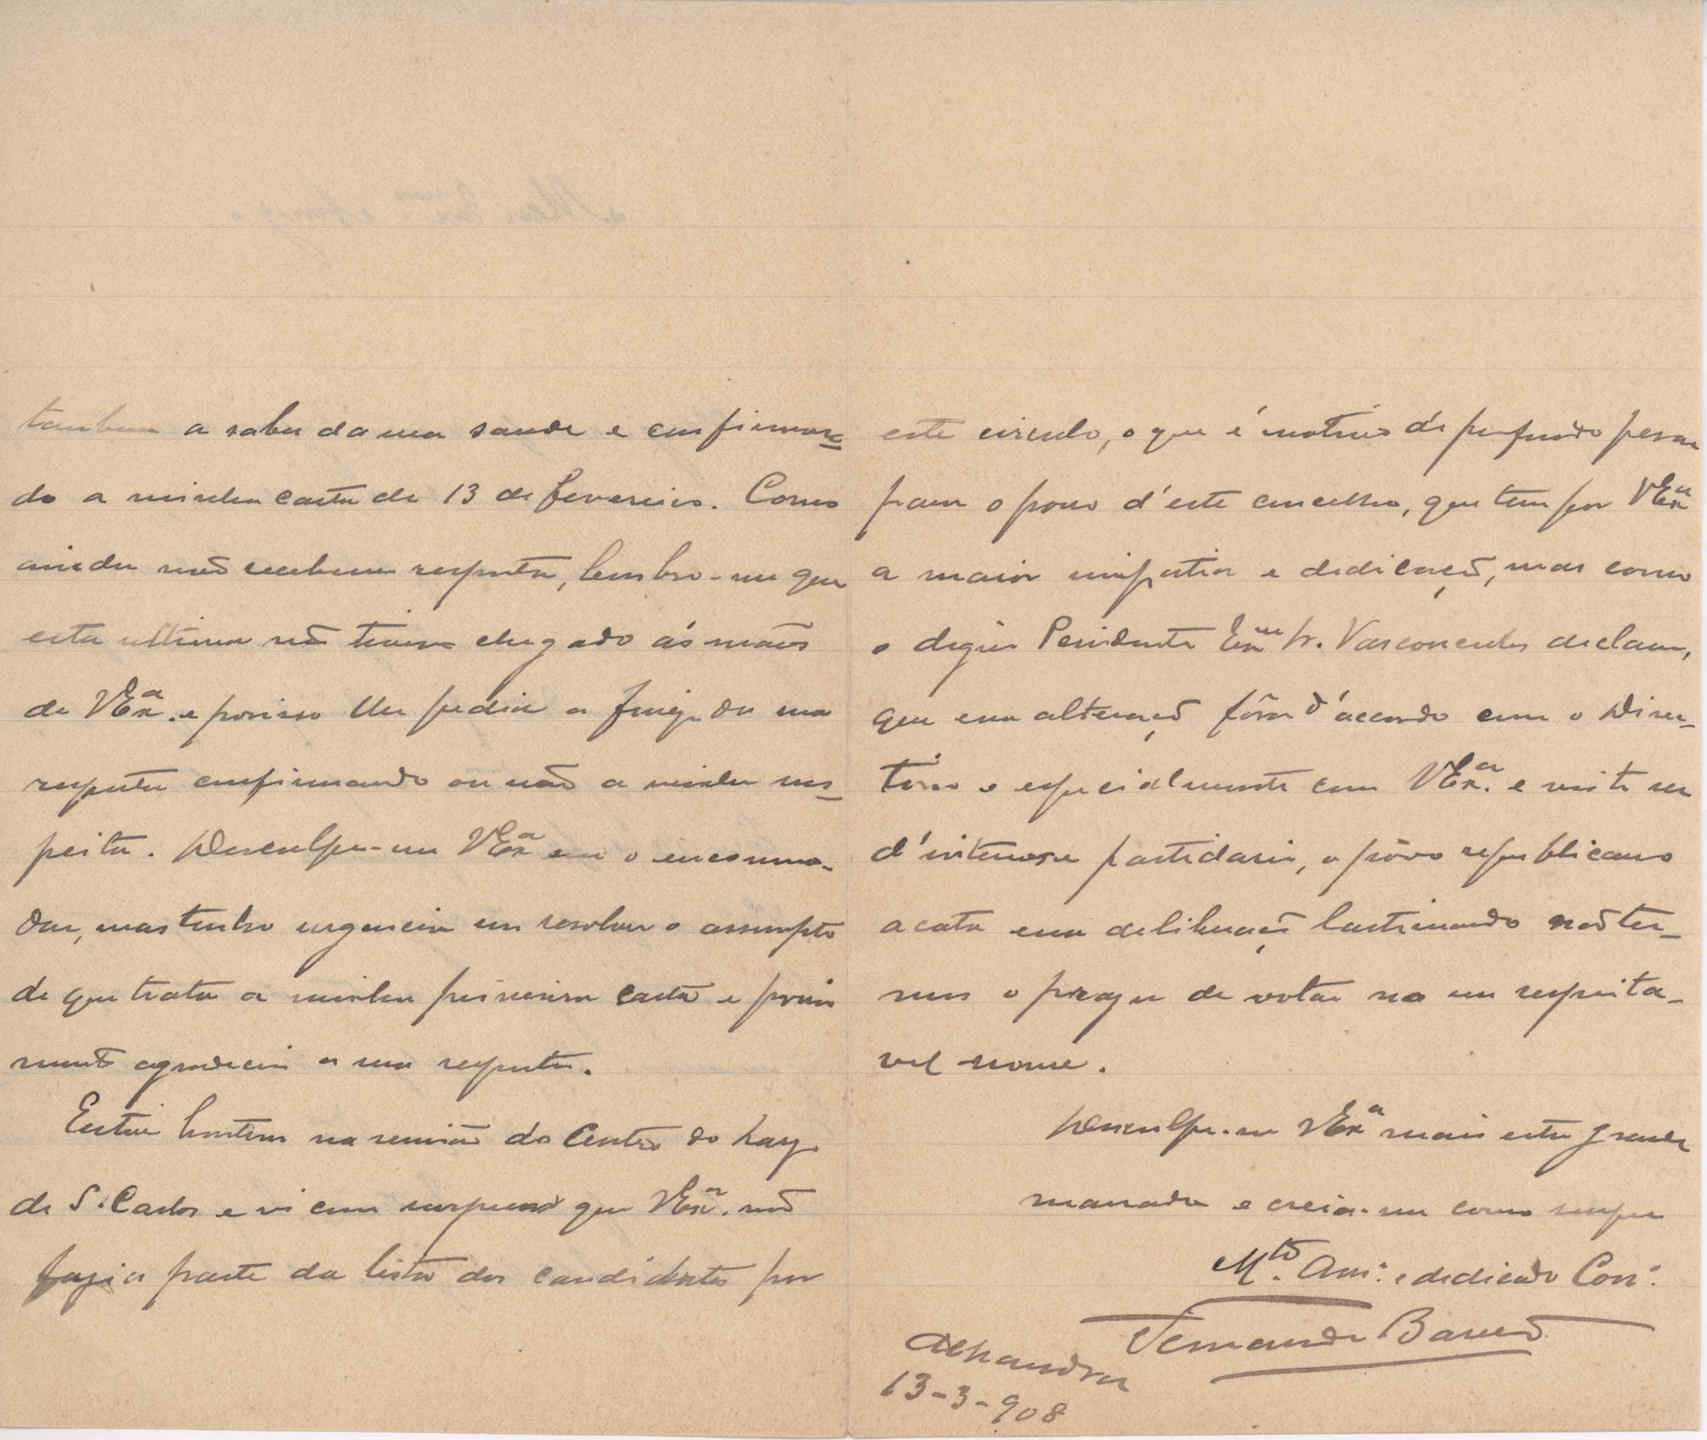 tambem a saber da sua saude e confirman=
do a minha carta de 13 de fevereiro. Como
ainda não recebesse resposta, lembro-me que
esta ultima não tivesse chegado ás mãos
de VExª. e porisso lhe pedia a fineza da sua
resposta confirmando ou não a minha sus=
peita. Desculpe-me VExª em o encommo-
dar, mas tenho urgencia em resolver o assumpto
de que trata a minha primeira carta e porisso
muito agradecia a sua resposta.
Estive hontem na reunião do Centro do Largo
de S. Carlos e vi com surpresa que VExª. não
fazia parte da lista dos candidatos por
este circulo, o que é motivo de profundo pesar
para o povo d'este concelho, que tem por VExª
a maior simpatia e dedicação, mas como
o digno Presidente Exmo Sr. Vasconcellos declarou,
que essa alteração fôra d'accordo com o Direc-
torio e especialmente com VExª. e visto ser
d'interesse partidario, o pôvo republicano
acata essa deliberação lastimando não ter-
mos o prazer de votar no seu respeita-
vel nome.
Desculpe-me VExª mais esta grande
massada e creia-me como sempre
Mto. Amº. e dedicado Corrº.
Fernando Barreto
Alhandra
13-3-908